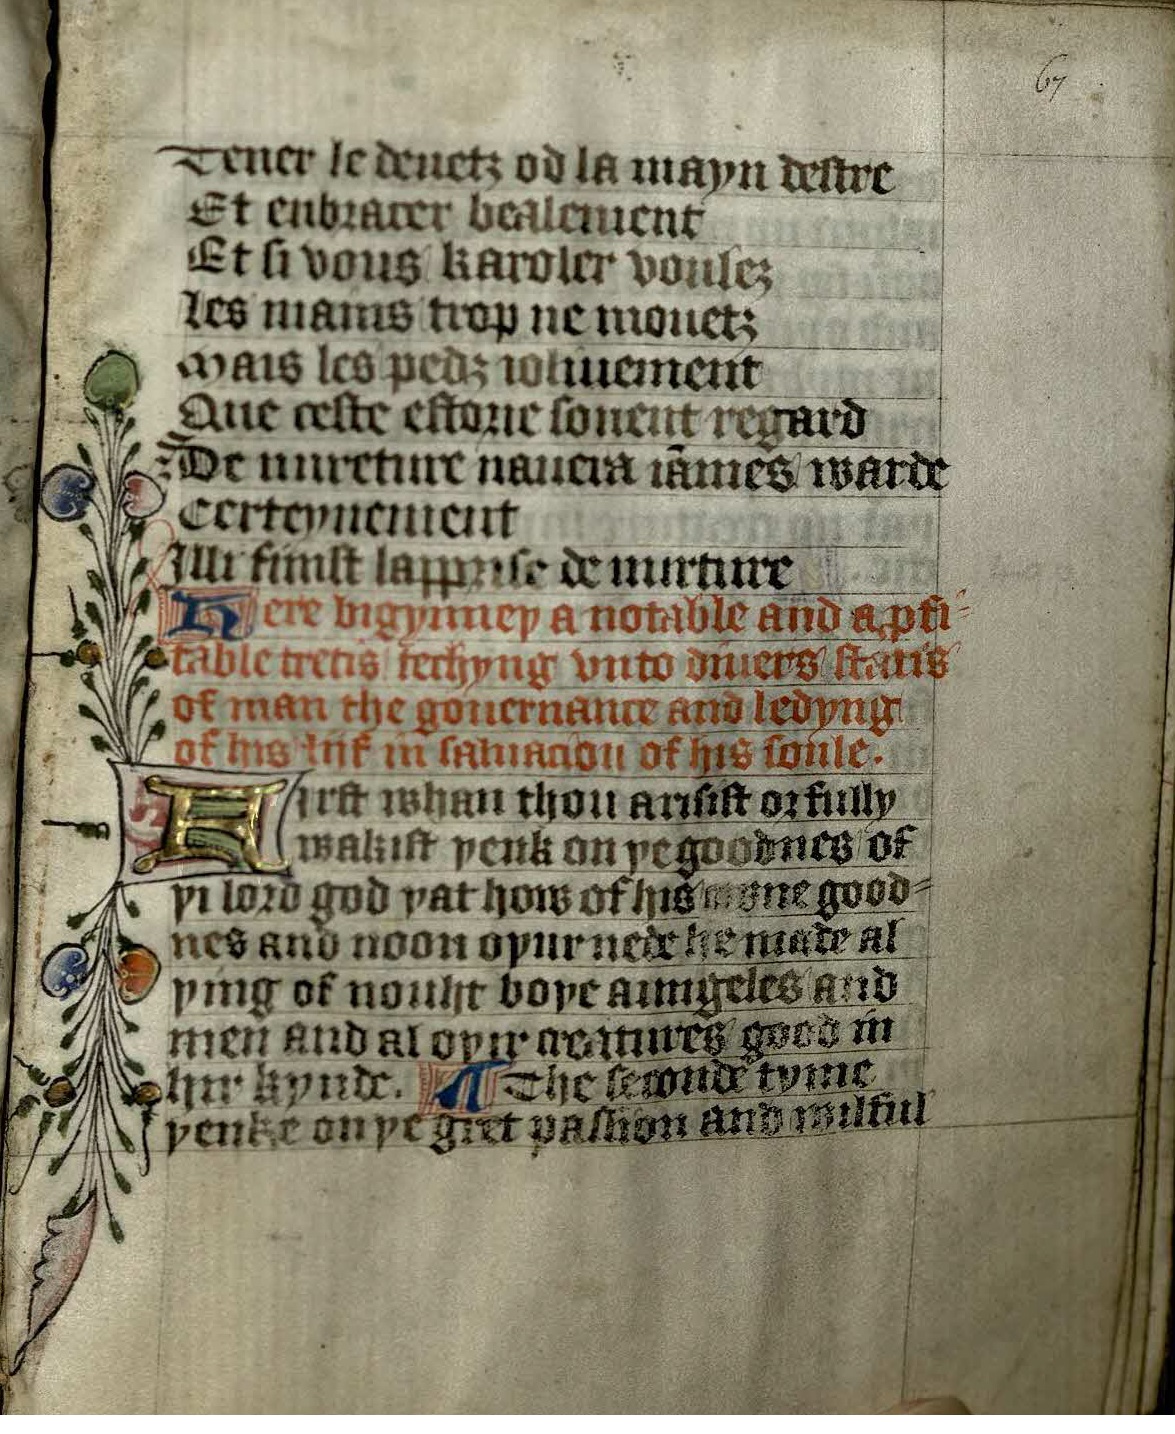 67
Tener le deuetz od la mayn destre
Et enbracer bealement
Et si vous karoler voulez
les mains trop ne mouetz
Mais les pedz ioliuement
Que ceste estorie souent regard
De nurcture nauera iāmes warde
Certeynement
Issi finist lapprise de nurture
Here bigynneþ a notable and a ꝓfi-
table tretis techyng vnto diuers statis
of man the gouernance and ledyng
of his liif in saluacion of his soule.
First whan thou arisist or fully
wakist þenk on þe goodnes of
þi lord god þat how of his owne good-
nes and noon oþur nede he made al
þing of nouȝt boþe aungeles and
men and al oþir creatures good in
hir kynde. The seconde tyme
þenke on þe gret passion and wilful